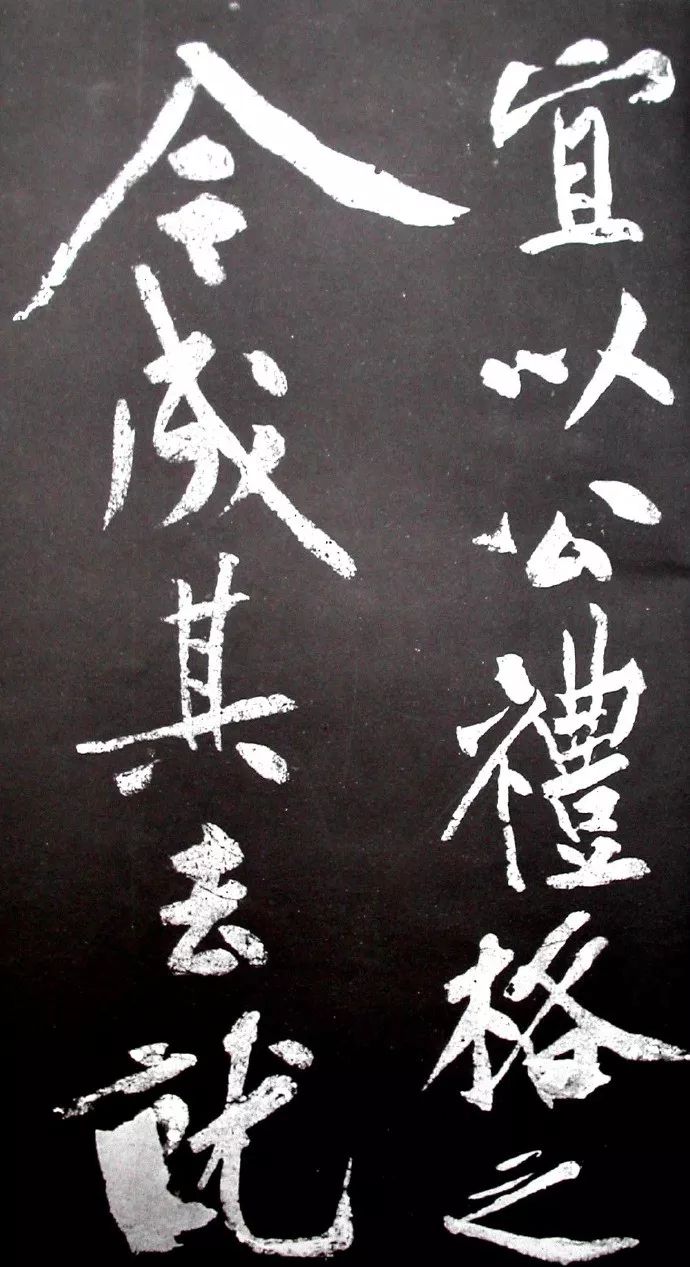 宜以公禮格之
令成其去就